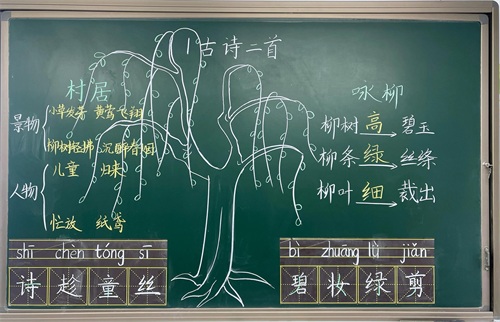 1 古诗二首
村居
景物
小草发芽 黄莺飞翔
柳树轻拂 沉醉春烟
人物
儿童 归来
忙放 纸鸢
咏柳
柳树 高 碧玉
柳条 绿 丝绦
柳叶 细 裁出
shī chèn tóng sī
诗 趁 童 丝
bì zhuāng lǜ jiǎn
碧 妆 绿 剪